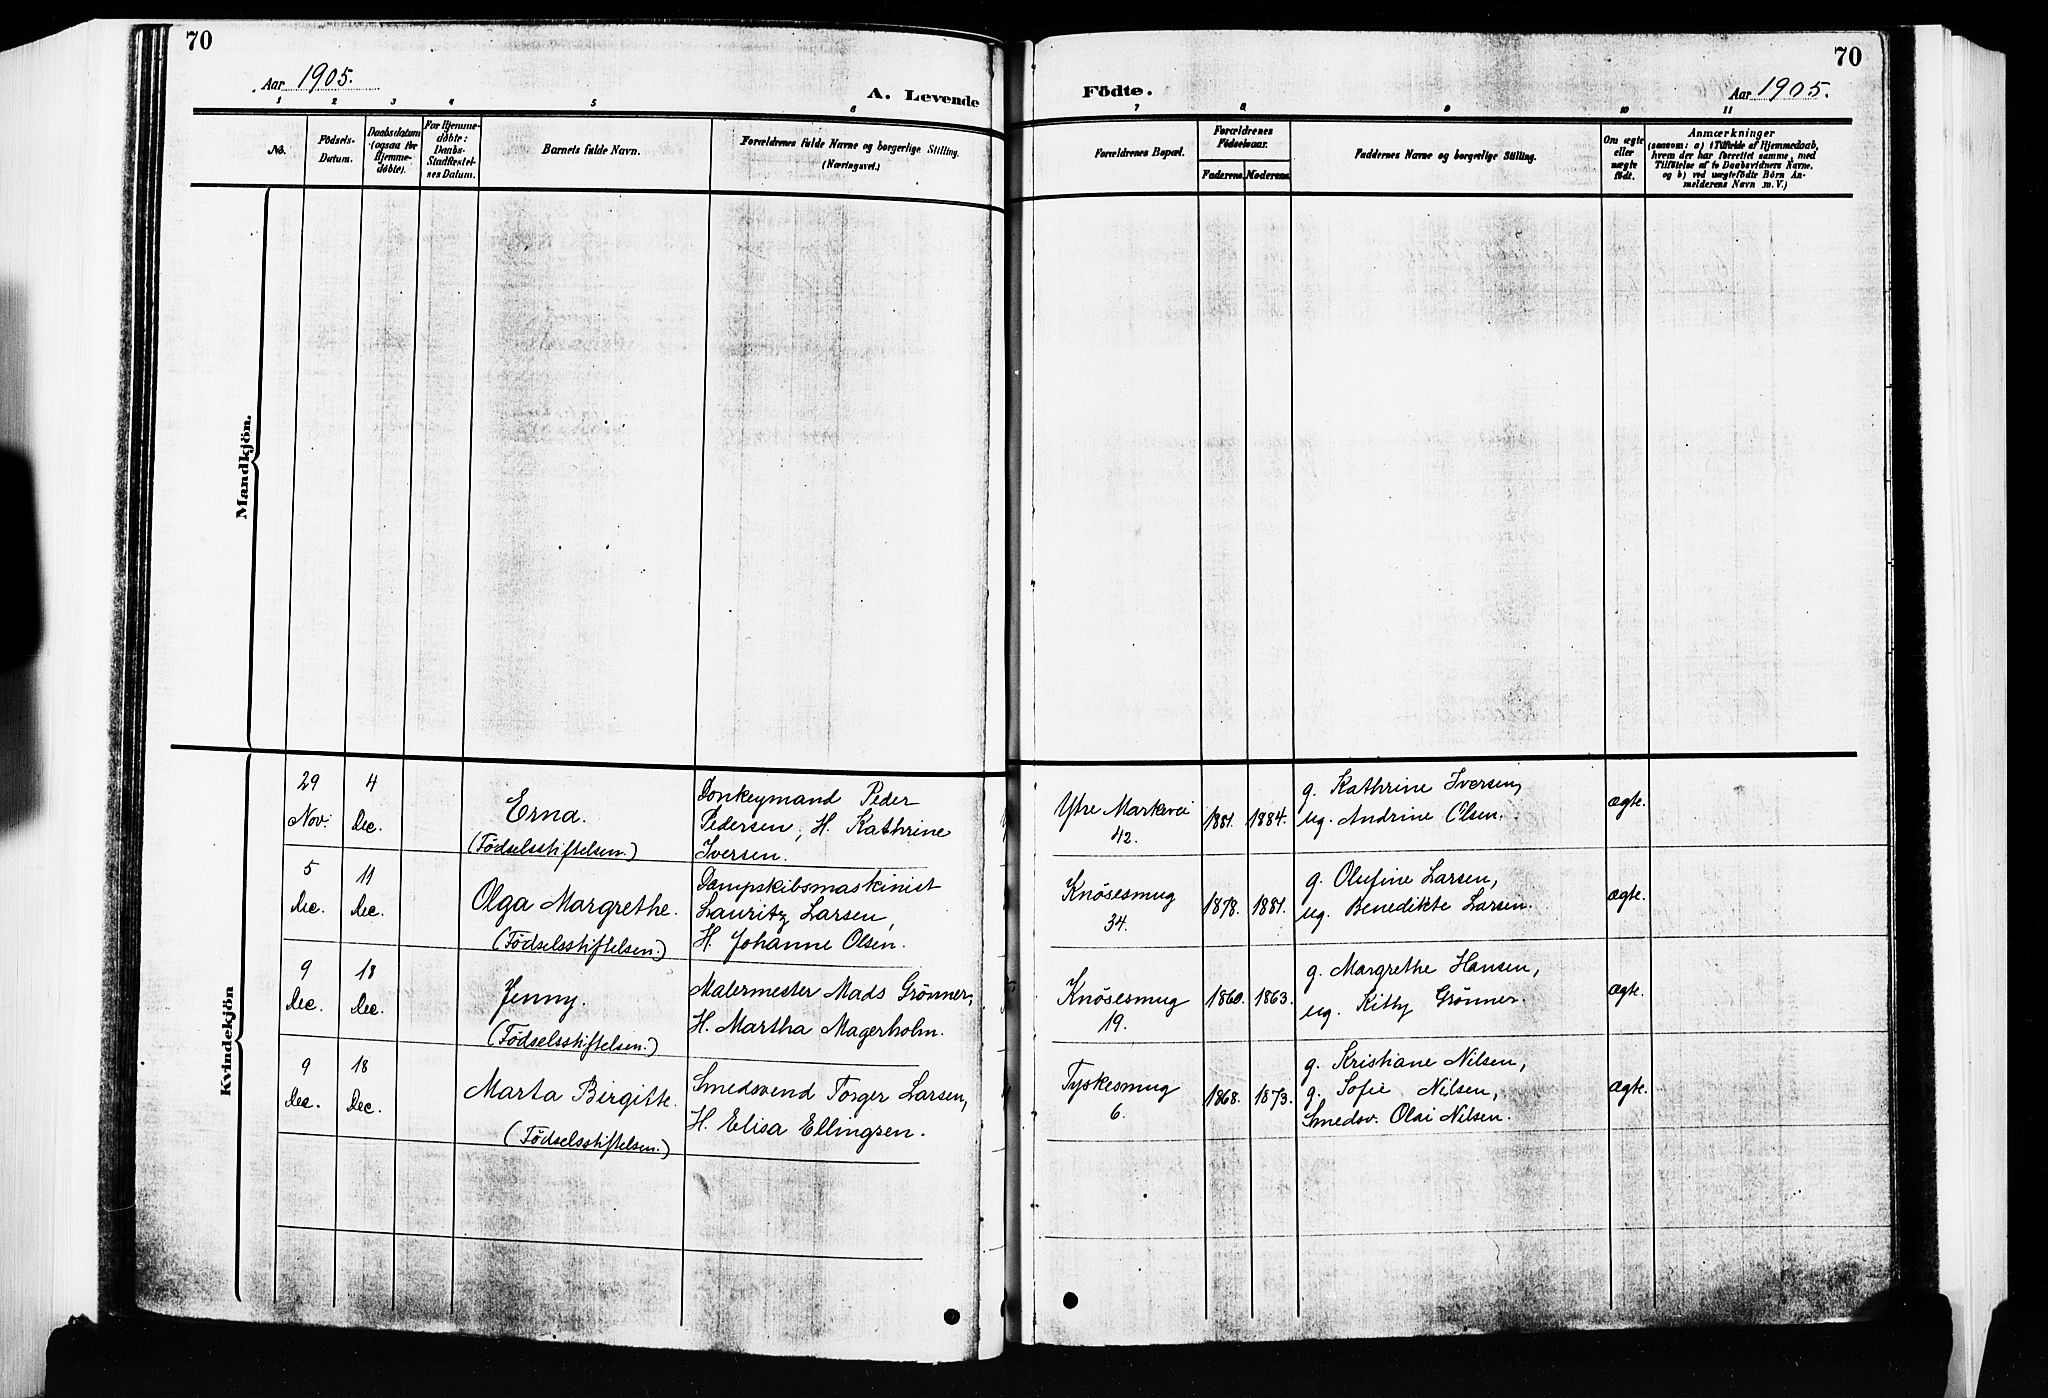 70
Aar 1905.
A. Levende
1 2 3 4 5 6
No.
Födsels-
Datum.
Daabsdatum
(ogsaa for
Hjemme-
döbte).
For Hjemme-
döbte:
Daabs-
Stadfæstel-
ses Datum.
Barnets fulde Navn.
Forældrenes fulde Navne og borgerlige Stilling.
(Næringsvei.)
Mandkjön.
Kvindekjön
29
Nov.
4
Dec.
Erna.
(Födselsstiftelsen.)
Donkeymand Peder
Pedersen, H. Kathrine
Iversen.
5
Dec.
11
Dec.
Olga Margrethe.
(Födselsstiftelsen.)
Dampskibsmaskinist
Lauritz Larsen,
H. Johanne Olsen.
9
Dec.
18
Dec.
Jenny.
(Födselsstiftelsen.)
Malermester Mads Grönner,
H. Martha Magerholm.
9
Dec.
18
Dec.
Marta Birgitte.
(Födselsstiftelsen.)
Smedsvend Torger Larsen,
H. Elisa Ellingsen.
70
Födte.
Aar 1905.
7 8 9 10 11
Forældrenes Bopæl.
Forældrenes
Födselsaar.
Faderens. Moderens.
Faddernes Navne og borgerlige Stilling.
Om ægte
eller
uægte
födt.
Anmærkninger
(saasom: a) i Tilfælde af Hjemmedaab,
hvem der har forrettet samme, med
Tilföielse af to Daabsvidners Navne.
og b) ved uægtefödte Börn An-
melderens Navn m. V.)
Ytre Markevei
42.
1881.
1884.
g. Kathrine Iversen,
ug. Andrine Olsen.
ægte.
Knösesmug
34.
1878.
1881.
g. Olufine Larsen,
ug. Benedikte Larsen.
ægte.
Knösesmug
19.
1860.
1863.
g. Margrethe Hansen,
ug. Kitty Grönner.
ægte.
Tyskesmug
6.
1868.
1873.
g. Kristiane Nilsen,
g. Sofie Nilsen,
Smedsv. Olai Nilsen.
ægte.